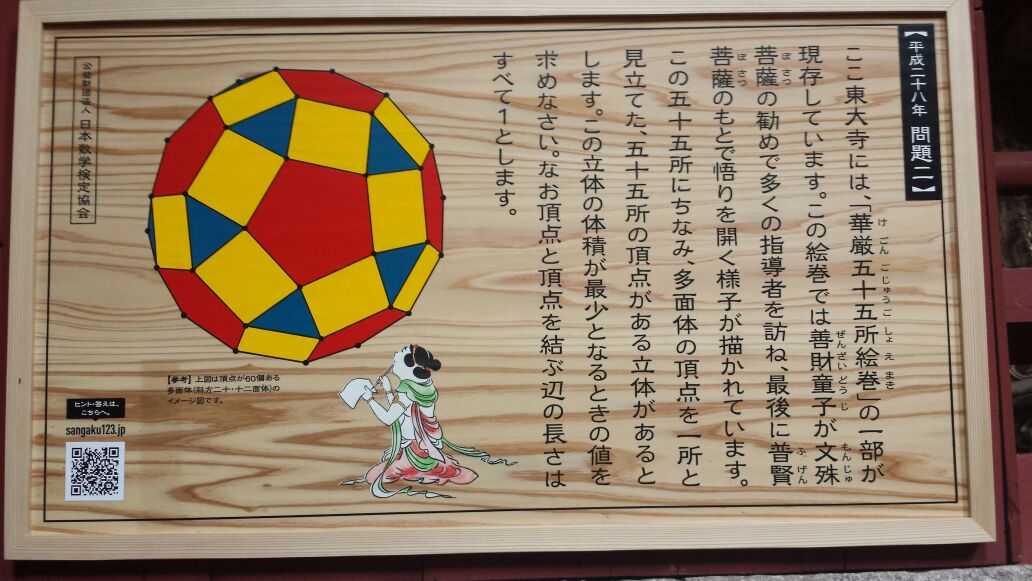 【平成二十八年 問題二】
ここ東大寺には、「華厳五十五所絵巻」の一部が
けごんごじゅうごしょえまき
現存しています。この絵巻では善財童子が文殊
ぜんざいどうじ
もんじゅ
菩薩の勧めで多くの指導者を訪ね、最後に普賢
ぼさつ
ふげん
菩薩のもとで悟りを開く様子が描かれています。
ぼさつ
この五十五所にちなみ、多面体の頂点を一所と
見立てた、五十五所の頂点がある立体があると
します。この立体の体積が最少となるときの値を
求めなさい。なお頂点と頂点を結ぶ辺の長さは
すべて1とします。
公益財団法人 日本数学検定協会
【参考】上図は頂点が60個ある
多面体(斜方二十・十二面体)の
イメージ図です。
ヒント・答えは、
こちらへ。
sangaku123.jp